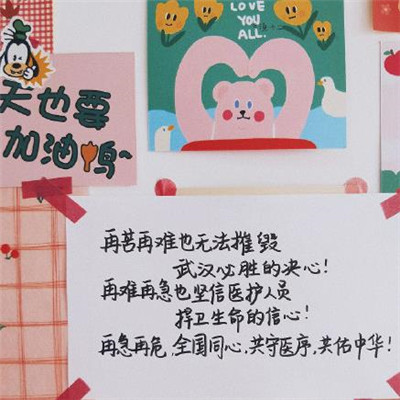 LOVE
YOU
ALL.
天也要
加油鸭~
再苦再难也无法摧毁
武汉必胜的决心!
再难再急也坚信医护人员
捍卫生命的信心!
再急再危,全国同心,共守医序,共佑中华!